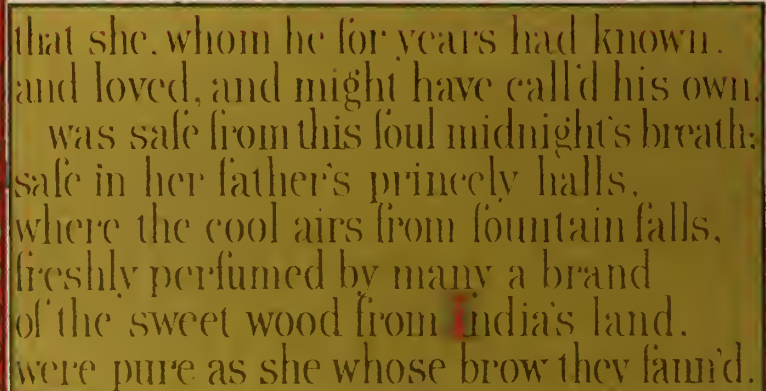 that she, whom he for years had known,
and loved, and might have call'd his own,
was safe from this foul midnight's breath;
safe in her father's princely halls,
where the cool airs from fountain falls,
freshly perfumed by many a brand
of the sweet wood from india's land,
were pure as she whose brow they fann'd.